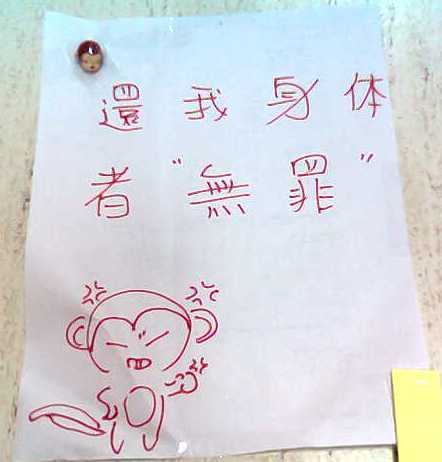 還我身体
者"無罪"